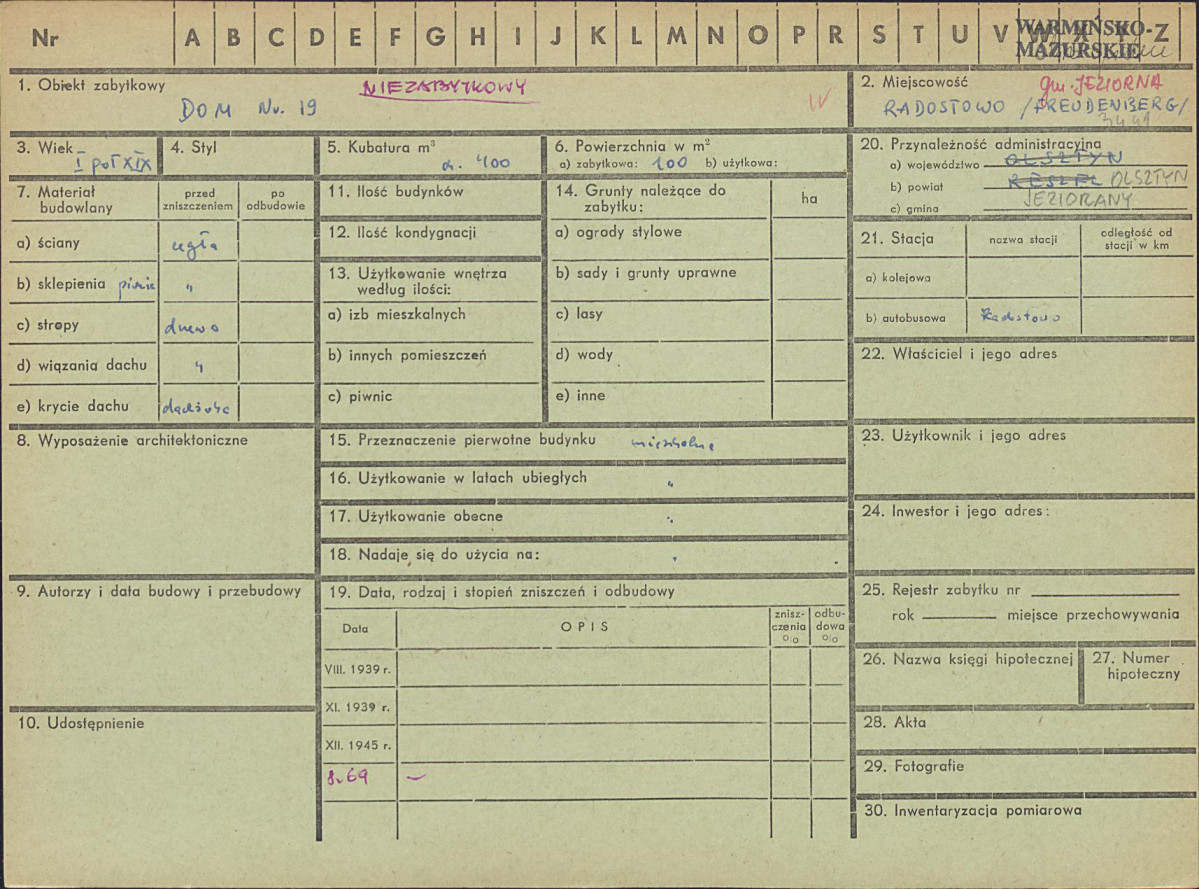 Nr A B C D E F G H I J K L M N O P R S T U V W X Y Z
WARMIŃSKO-
MAZURSKIE
1. Obiekt zabytkowy
NIEZABYTKOWY
DOM Nr. 19
W
2. Miejscowość
gm. JEZIORNA
RADOSTOWO /FREUDENBERG/
3. Wiek I poł XIX
4. Styl
5. Kubatura m³
ok. 400
6. Powierzchnia w m²
a) zabytkowa: 100 b) użytkowa:
20. Przynależność administracyjna
a) województwo OLSZTYN
b) powiat RESZEL OLSZTYN
c) gmina JEZIORANY
7. Materiał budowlany
przed zniszczeniem
po odbudowie
a) ściany cegła
b) sklepienia piwnic "
c) stropy drewo
d) wiązania dachu "
e) krycie dachu dachówka
11. Ilość budynków
12. Ilość kondygnacji
13. Użytkowanie wnętrza
według ilości:
a) izb mieszkalnych
b) innych pomieszczeń
c) piwnic
14. Grunty należące do
zabytku:
ha
a) ogrody stylowe
b) sady i grunty uprawne
c) lasy
d) wody
e) inne
21. Stacja
nazwa stacji
odległość od
stacji w km
a) kolejowa
b) autobusowa Radostowo
22. Właściciel i jego adres
8. Wyposażenie architektoniczne
15. Przeznaczenie pierwotne budynku mieszkalne
16. Użytkowanie w latach ubiegłych "
17. Użytkowanie obecne "
18. Nadaje się do użycia na: "
23. Użytkownik i jego adres
24. Inwestor i jego adres:
9. Autorzy i data budowy i przebudowy
19. Data, rodzaj i stopień zniszczeń i odbudowy
Data
OPIS
znisz-
czenia
%
odbu-
dowa
%
VIII. 1939 r.
XI. 1939 r.
XII. 1945 r.
69 —
10. Udostępnienie
25. Rejestr zabytku nr
rok miejsce przechowywania
26. Nazwa księgi hipotecznej
27. Numer
hipoteczny
28. Akta
29. Fotografie
30. Inwentaryzacja pomiarowa